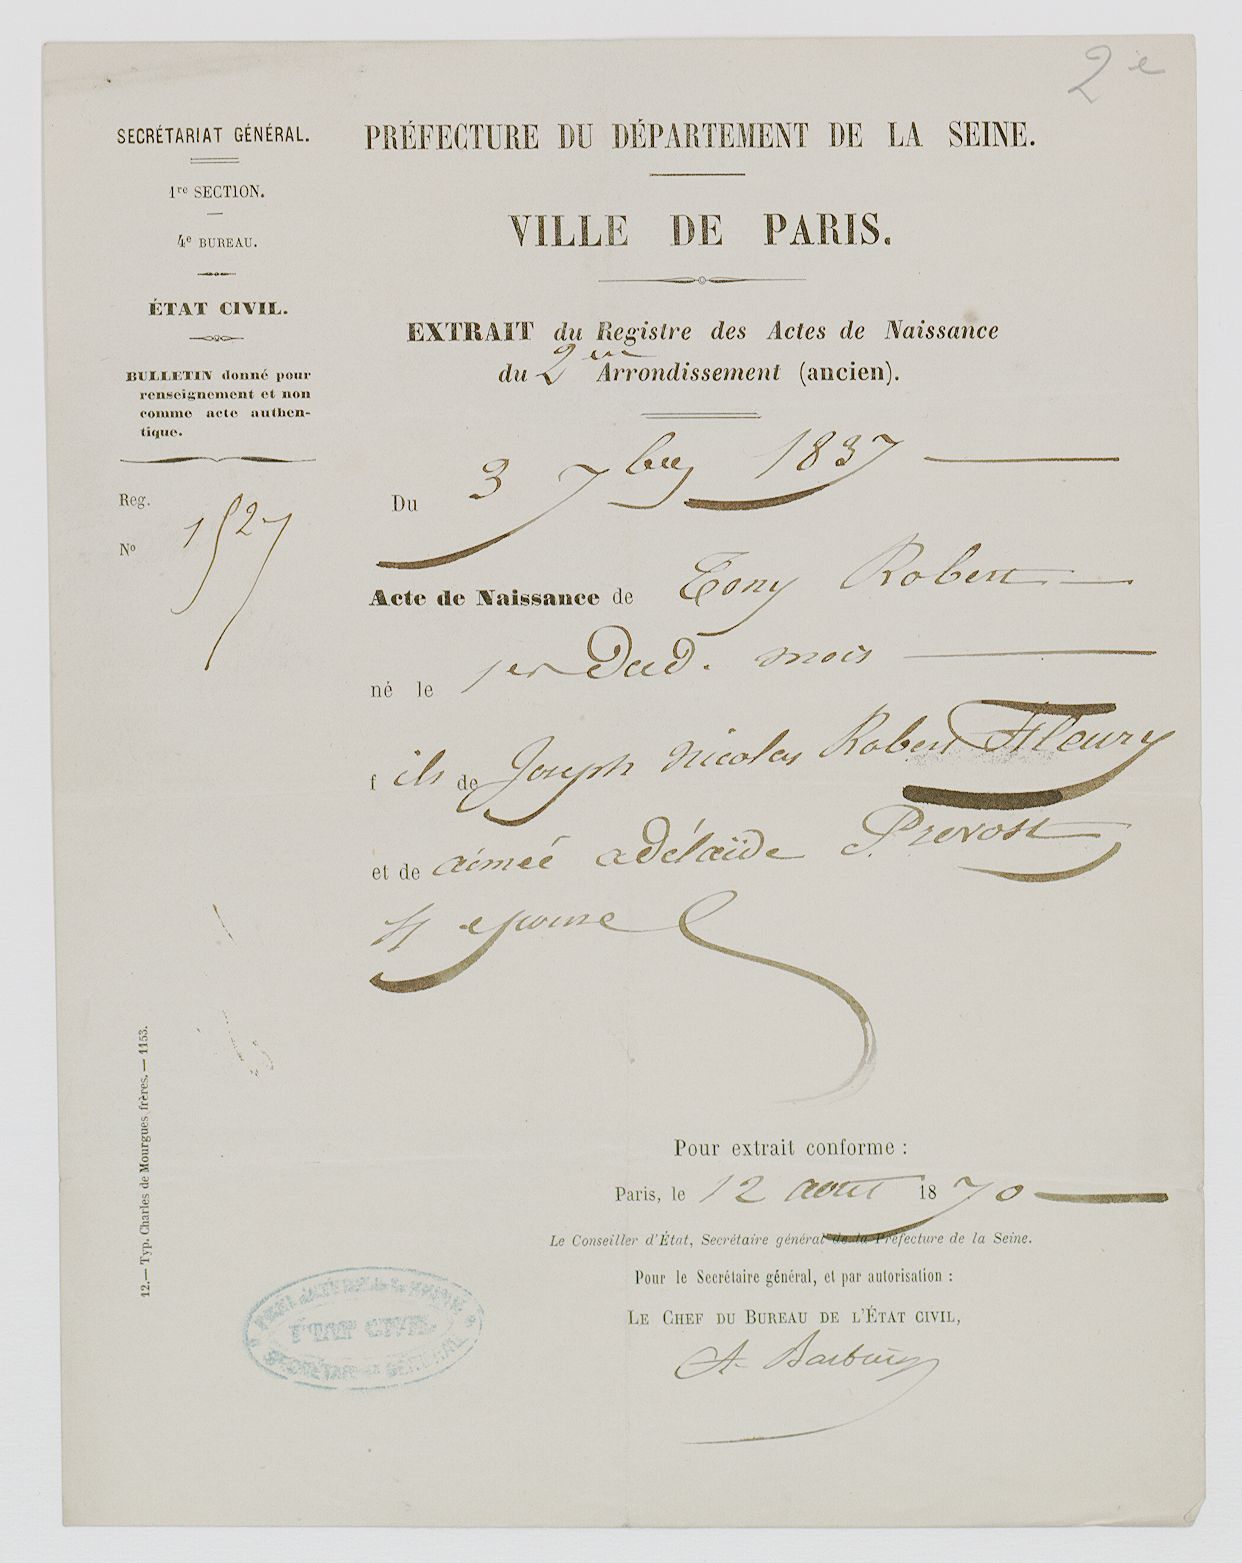 2e
SECRÉTARIAT GÉNÉRAL.
1re SECTION.
4e BUREAU.
ÉTAT CIVIL.
BULLETIN donné pour
renseignement et non
comme acte authen-
tique.
Reg.
No 1527
PRÉFECTURE DU DÉPARTEMENT DE LA SEINE.
VILLE DE PARIS.
EXTRAIT du Registre des Actes de Naissance
du 2em Arrondissement (ancien).
Du 3 7bre 1837
Acte de Naissance de Tony Robert
né le 1er dud. mois
fils de Joseph Nicolas Robert Fleury
et de aimée adélaïde Prevost
épouse
Pour extrait conforme :
Paris, le 12 aout 1870
Le Conseiller d'État, Secrétaire général de la Préfecture de la Seine.
Pour le Secrétaire général, et par autorisation :
LE CHEF DU BUREAU DE L'ÉTAT CIVIL,
ÉTAT CIVIL
SECRÉTARIAT GÉNÉRAL
12.— Typ. Charles de Mourgues frères. — 1153.